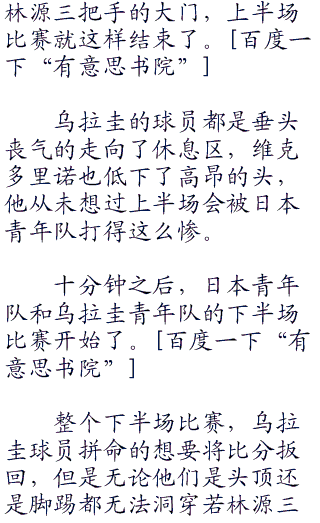 林源三把手的大门，上半场
比赛就这样结束了。[百度一
下“有意思书院”]
乌拉圭的球员都是垂头
丧气的走向了休息区，维克
多里诺也低下了高昂的头，
他从未想过上半场会被日本
青年队打得这么惨。
十分钟之后，日本青年
队和乌拉圭青年队的下半场
比赛开始了。[百度一下“有
意思书院”]
整个下半场比赛，乌拉
圭球员拼命的想要将比分扳
回，但是无论他们是头顶还
是脚踢都无法洞穿若林源三